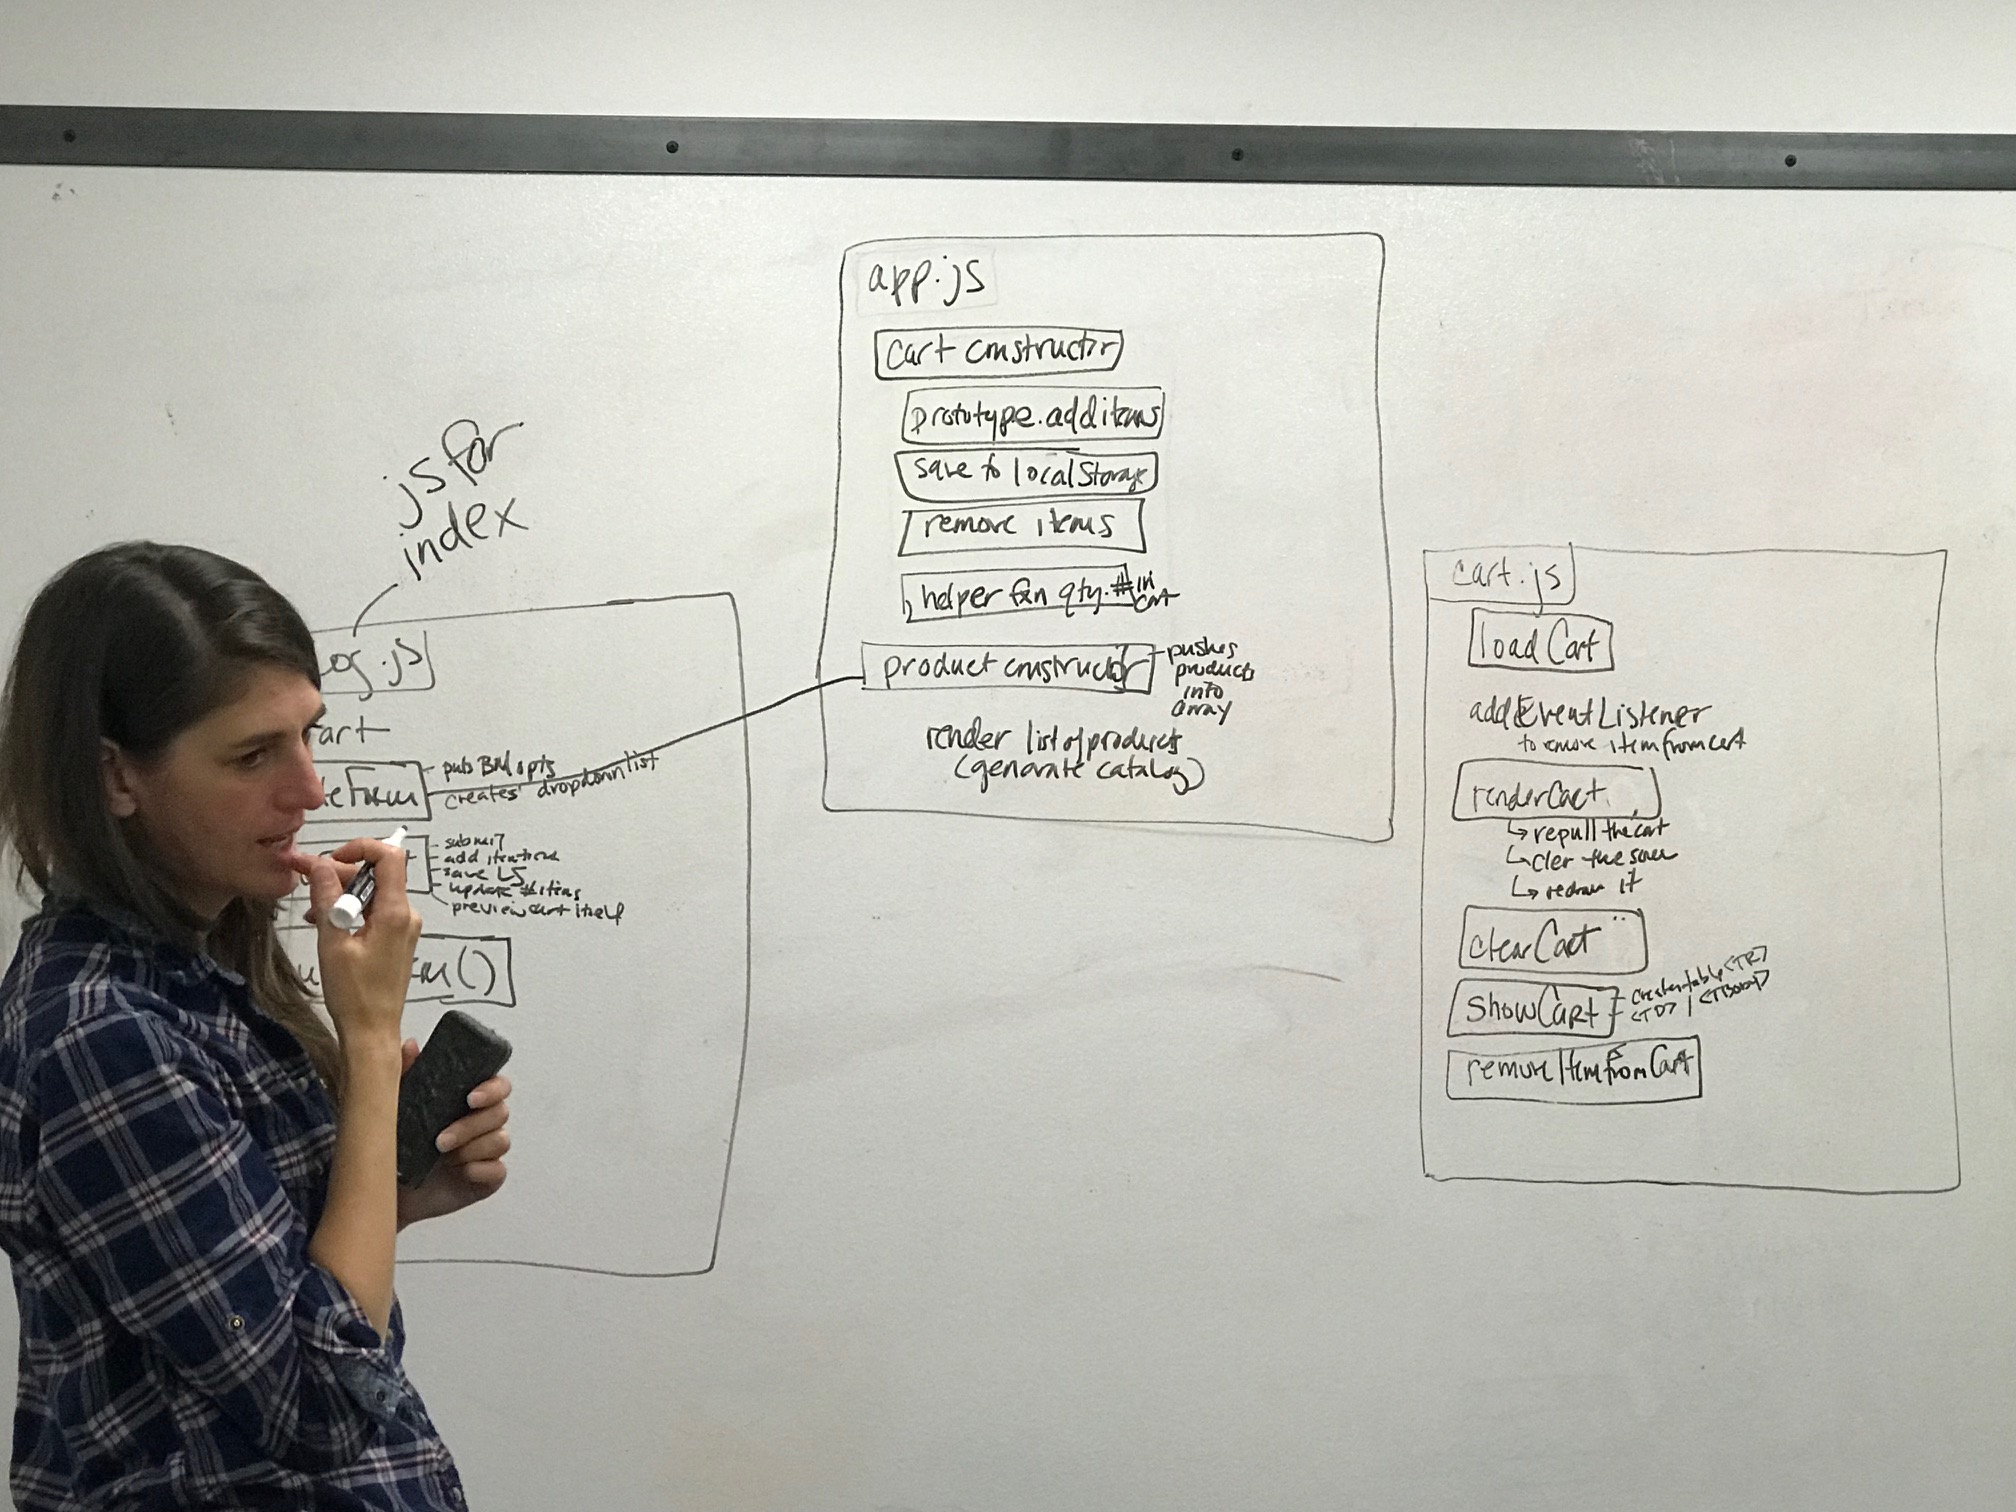 js for
index
og.js
art
eForm
puts BM opts
creates dropdown list
submit
add items
save LS
update # items
preview cart itself
()
app.js
cart constructor
prototype.add items
save to localStorage
remove items
helper fxn qty. # in
cart
product constructor
pushes
products
into
array
render list of products
(generate catalog)
cart.js
loadCart
addEventListener
to remove item from cart
renderCart
↳ repull the cart
↳ cler the
↳ redraw it
clearCart
showCart
<TR>
<TD> / <TBody>
removeItemfromCart